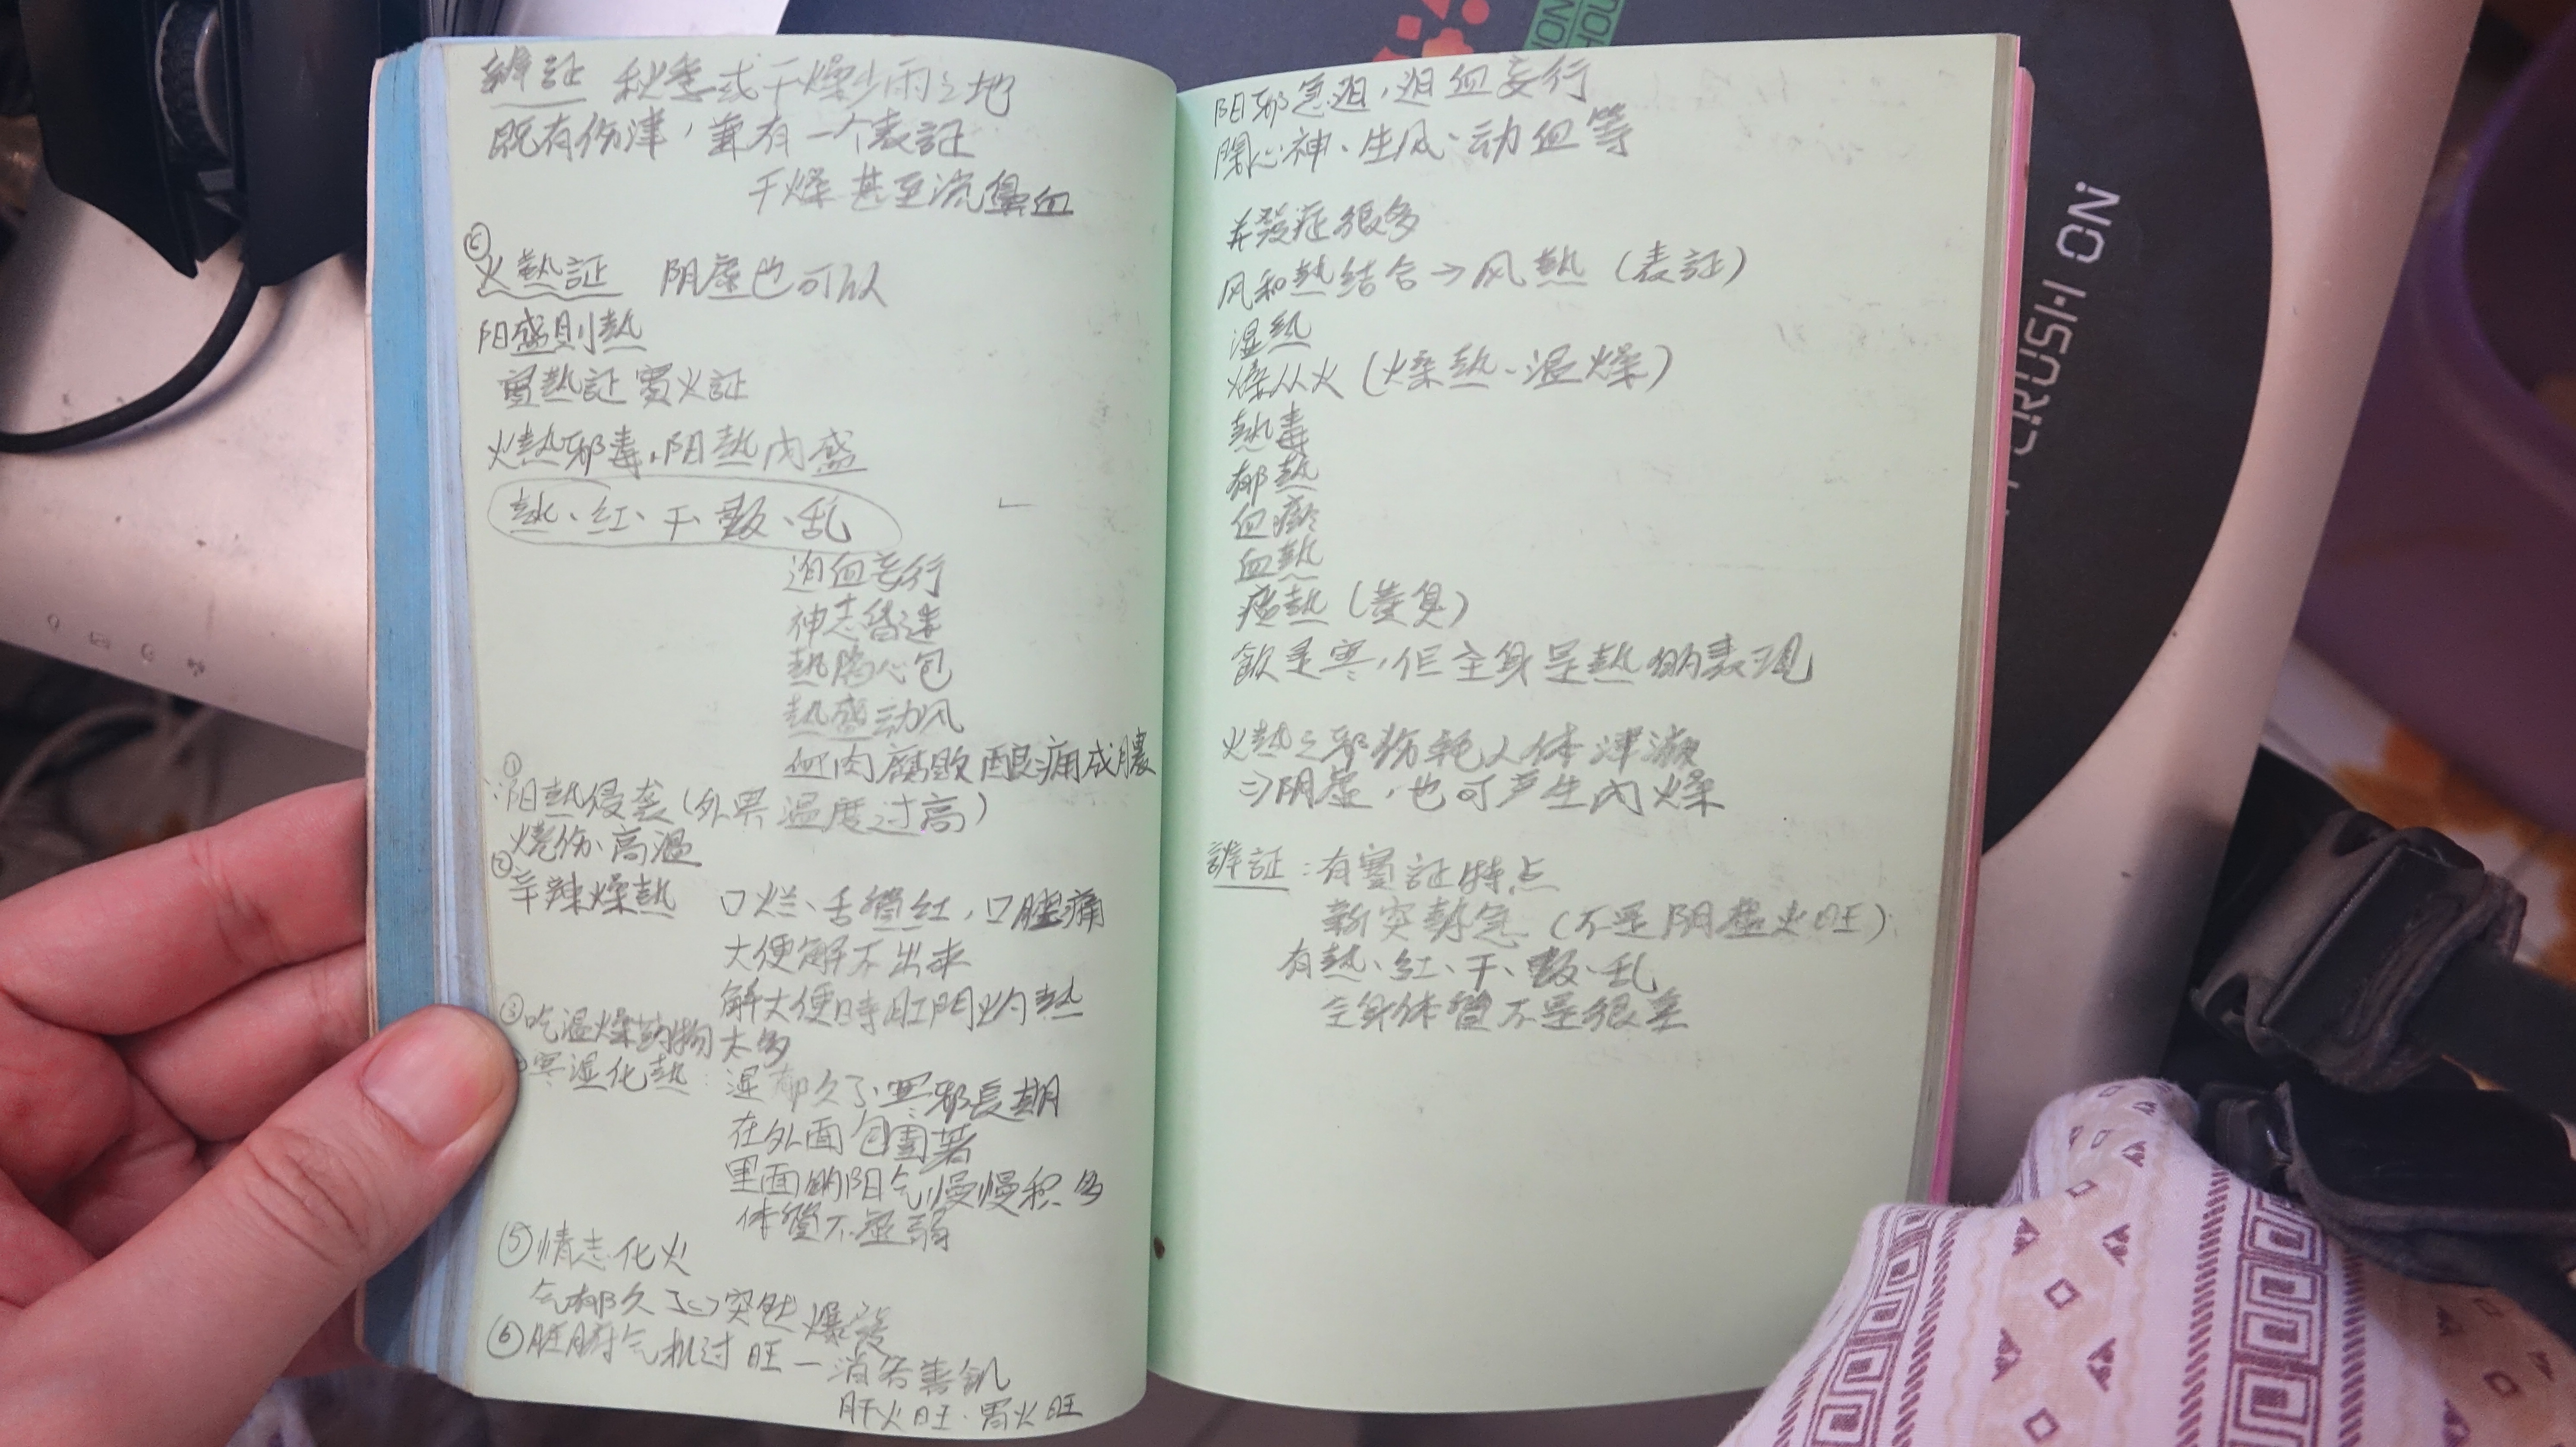 辨証 秋季或干燥少雨之地
既有伤津，兼有一个表証
干燥甚至流鼻血
⑥
火熱証 阴虚也可以
阳盛則熱
實熱証 實火証
火熱邪毒、阳熱内盛
熱、红、干、数、乱
迫血妄行
神志昏迷
熱陷心包
熱盛动风
血肉腐败 酿痈成膿
①
阳熱侵袭（外界温度过高）
烧伤、高温
②
辛辣燥熱 口烂、舌體红，口腔痛
大便解不出来
解大便時肛門灼熱
③吃温燥药物太多
寒湿化熱：湿郁久了、寒邪長期
在外面包圍著
里面的阳气慢慢积多
体質不虚弱
⑤情志化火
气郁久了→突然爆發
⑥脏腑气机过旺－消谷善飢
肝火旺、胃火旺
阳邪急迫，迫血妄行
心神、生风、动血等
并發症很多
风和熱结合→风熱（表証）
湿熱
燥从火（燥熱、温燥）
熱毒
郁熱
血瘀
血熱
痰熱（黄臭）
飲是寒，但全身是熱的表现
火熱之邪伤耗人体津液
⇒阴虚，也可产生内燥
辨証：有實証特点
新突勢急（不是阴虚火旺）
有熱、红、干、数、乱
全身体質不是很差
CRUSH ON